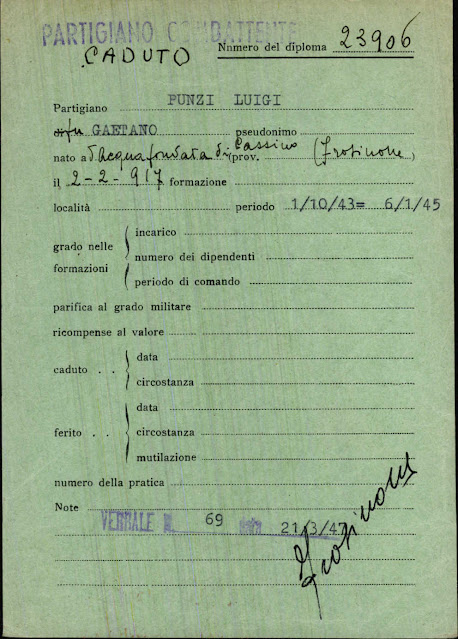 PARTIGIANO COMBATTENTE
CADUTO
Numero del diploma 23906
Partigiano PUNZI LUIGI
GAETANO pseudonimo
nato a d'Acquafondata di Cassino (prov. (Frosinone)
il 2-2-917 formazione
località periodo 1/10/43= 6/1/45
grado nelle formazioni
incarico
numero dei dipendenti
periodo di comando
parifica al grado militare
ricompense al valore
caduto . .
data
circostanza
ferito . .
data
circostanza
mutilazione
numero della pratica
Note
VERBALE N. 69 21/3/47
Frosinone